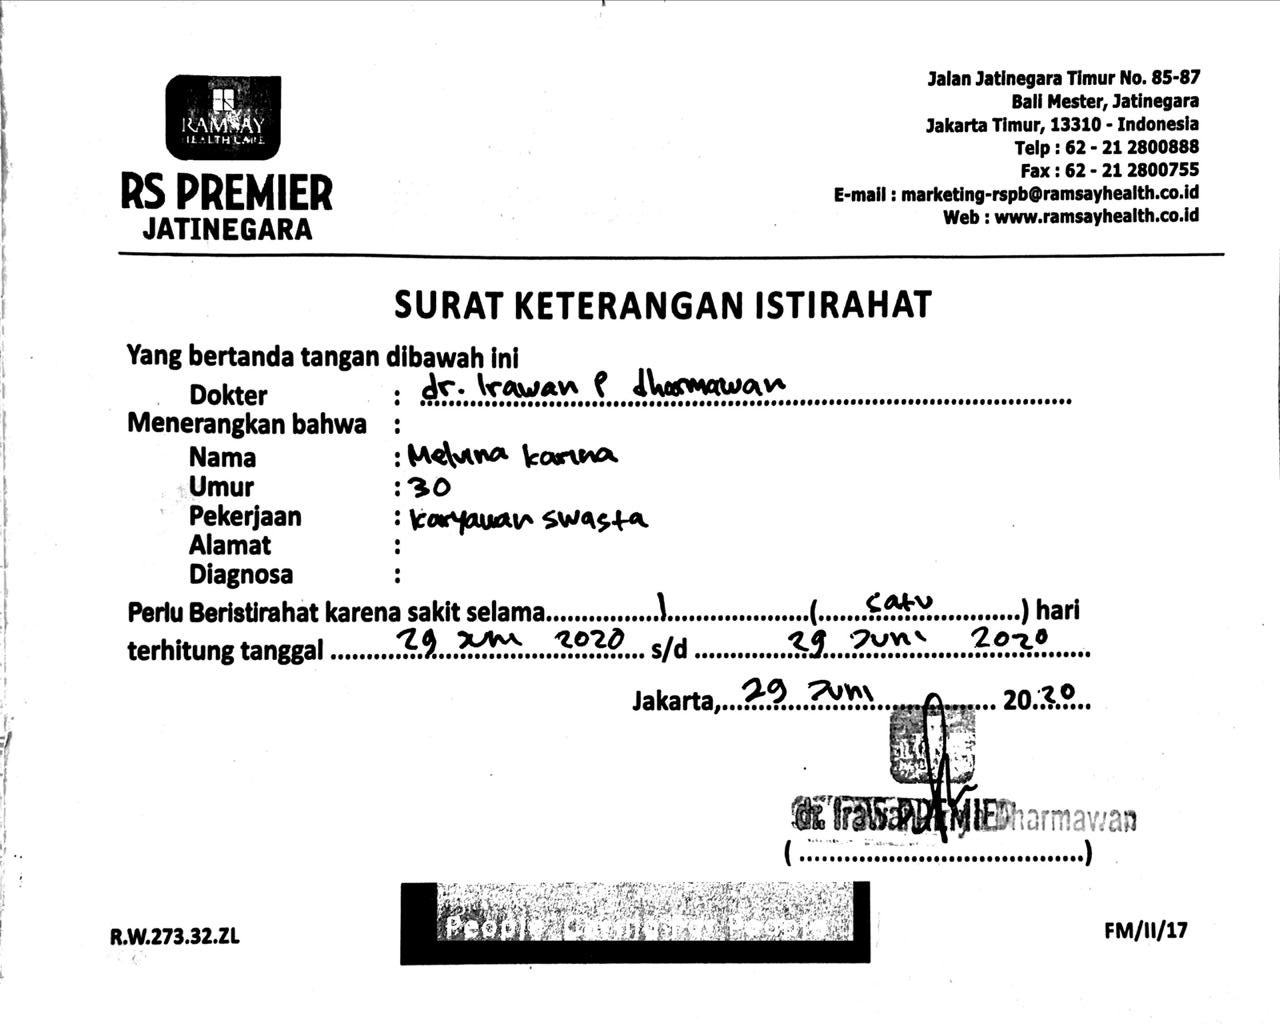 RAMSAY
HEALTH CARE
RS PREMIER
JATINEGARA
Jalan Jatinegara Timur No. 85-87
Bali Mester, Jatinegara
Jakarta Timur, 13310 - Indonesia
Telp : 62 - 21 2800888
Fax : 62 - 21 2800755
E-mail : marketing-rspb@ramsayhealth.co.id
Web : www.ramsayhealth.co.id
SURAT KETERANGAN ISTIRAHAT
Yang bertanda tangan dibawah ini
Dokter : dr. Irawan P dharmawan
Menerangkan bahwa :
Nama : Melvina karina
Umur : 30
Pekerjaan : karyawan swasta
Alamat :
Diagnosa :
Perlu Beristirahat karena sakit selama...............1....................(......satu..............) hari
terhitung tanggal .........29 Juni 2020... s/d ............29 Juni 2020......
Jakarta,...29 Juni ................ 20.20..
dr. Irawan Dharmawan
RS PREMIER
(........................................)
People Caring for People
R.W.273.32.ZL
FM/II/17